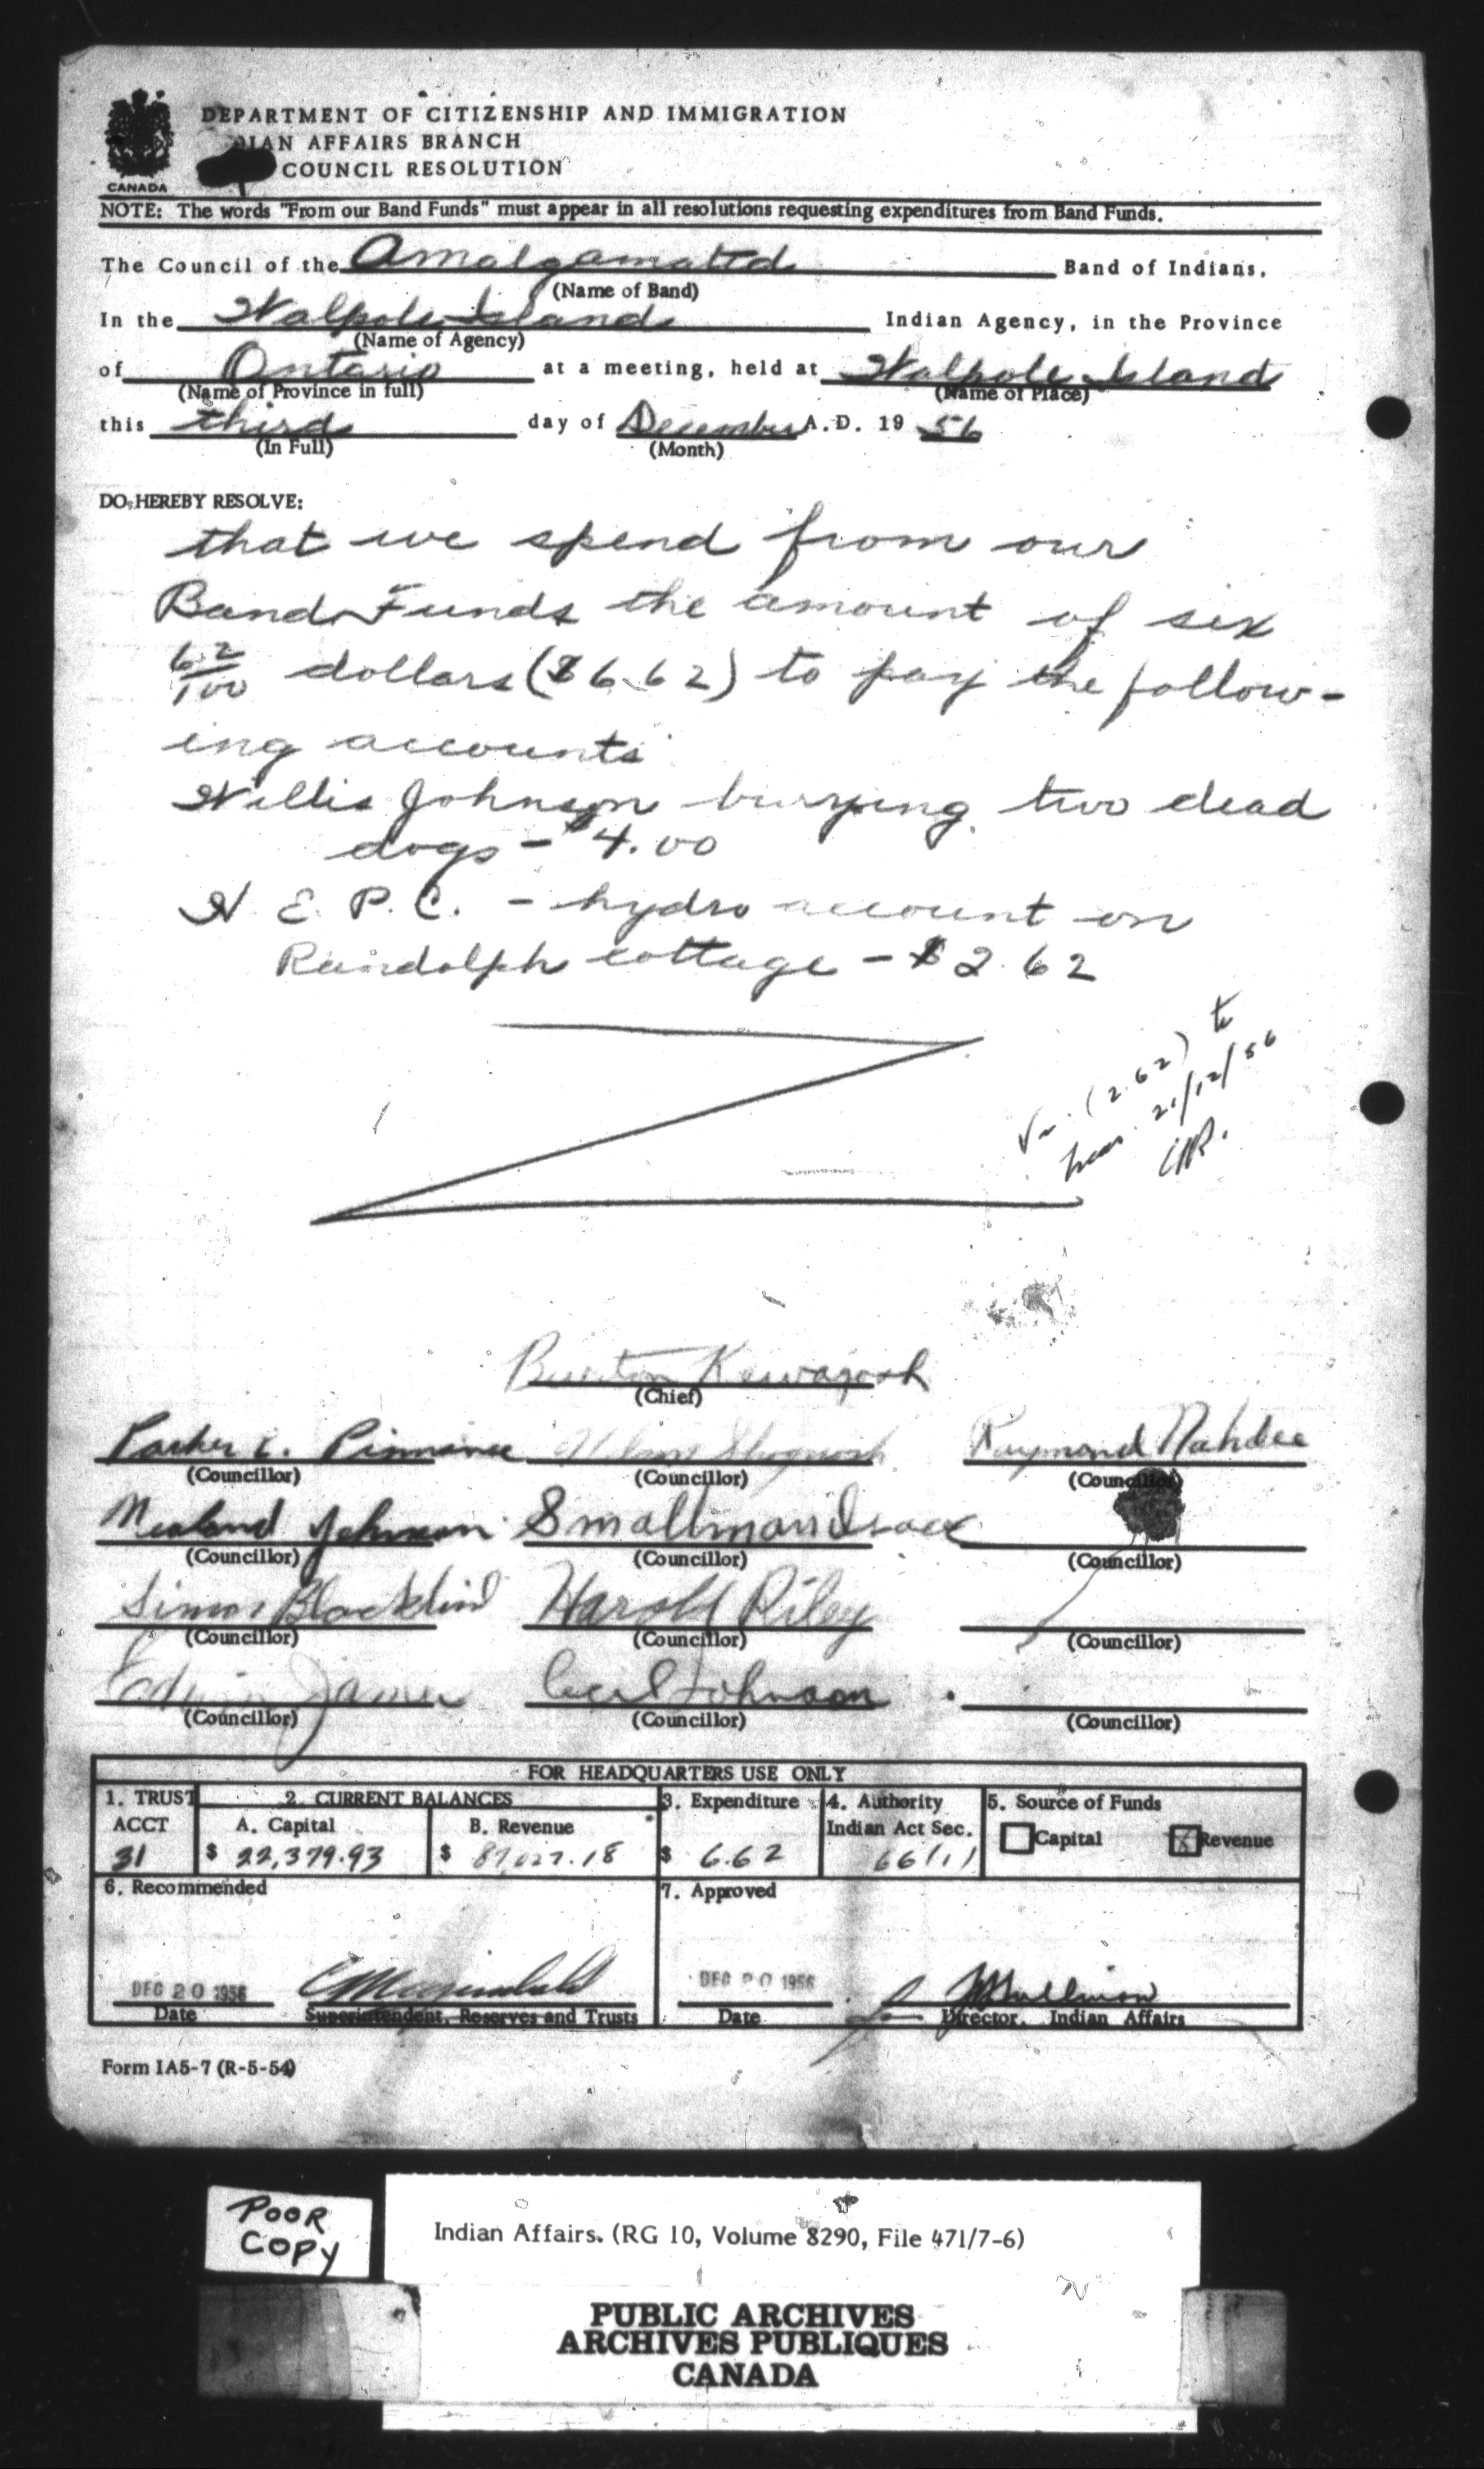 DEPARTMENT OF CITIZENSHIP AND IMMIGRATION
DIAN AFFAIRS BRANCH
COUNCIL RESOLUTION
CANADA
NOTE: The words "From our Band Funds" must appear in all resolutions requesting expenditures from Band Funds.
The Council of the Amalgamated Band of Indians,
(Name of Band)
In the Walpole Island Indian Agency, in the Province
(Name of Agency)
of Ontario at a meeting, held at Walpole Island
(Name of Province in full) (Name of Place)
this third day of December A.D. 19 56
(In Full) (Month)
DO HEREBY RESOLVE:
that we spend from our
Band Funds the amount of six
62/100 dollars ($6.62) to pay the follow-
ing accounts
Willis Johnson burying two dead
dogs - $4.00
H. E. P. C. - hydro account on
Randolph cottage - $2.62
(2.62) to
21/12/56
Burton Kewayosh
(Chief)
Parker C. Pinnance Shognosh Raymond Nahdee
(Councillor) (Councillor) (Councillor)
Johnson Smallman Isaac
(Councillor) (Councillor) (Councillor)
Simon Blackbird Harold Riley
(Councillor) (Councillor) (Councillor)
Edwin James Cecil Johnson
(Councillor) (Councillor) (Councillor)
FOR HEADQUARTERS USE ONLY
1. TRUST 2. CURRENT BALANCES 3. Expenditure 4. Authority 5. Source of Funds
ACCT A. Capital B. Revenue Indian Act Sec. Capital Revenue
31 $ 22,379.93 $ $ 6.62 66(1)
6. Recommended 7. Approved
DEC 20 1956 DEC 20 1956
Date Superintendent, Reserves and Trusts Date Director, Indian Affairs
Form IA5-7 (R-5-54)
POOR
COPY
Indian Affairs. (RG 10, Volume 8290, File 471/7-6)
PUBLIC ARCHIVES
ARCHIVES PUBLIQUES
CANADA